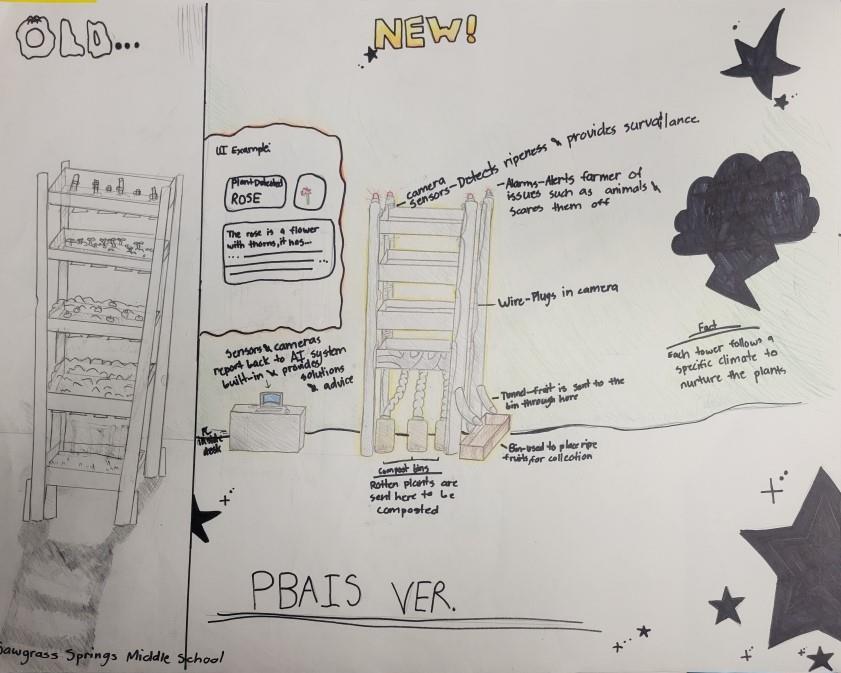 OLD...
NEW!
UI Example:
Plant Detected
ROSE
The rose is a flower
with thorns, it has...
camera
sensors-Detects ripeness & provides survailance.
-Alarms-Alerts farmer of
issues such as animals &
scares them off
-Wire-Plugs in camera
Fact
Each tower follows a
specific climate to
nurture the plants
Sensors & cameras
report back to AI system
built-in & provides
solutions
& advice
desk
-Tunnel-fruit is sent to the
bin through here
Bin-used to place ripe
fruits, for collection
compost bins
Rotten plants are
sent here to be
composted
PBAIS VER.
Sawgrass Springs Middle School